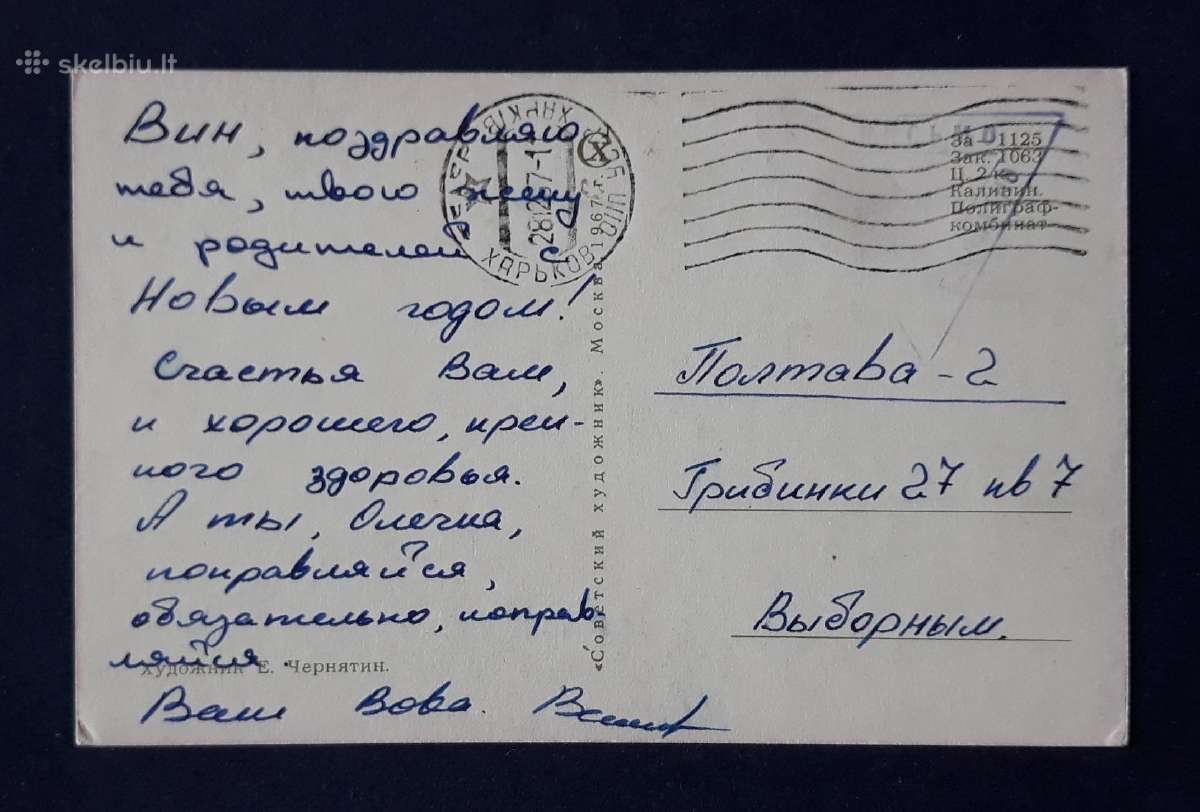 skelbiu.lt
Вин, поздравляю
тебя, твою жену
и родителей с
Новым годом!
Счастья Вам,
и хорошего, креп-
кого здоровья.
А ты, Олечка,
поправляйся,
обязательно, поправ-
ляйся.
Художник Е. Чернятин.
Ваш Вова.
ХАРЬКОВ
28.12
1967 г.
«Советский художник». Москва
За 1125
Зак. 1063
Ц. 2 к.
Калинин.
Полиграф-
комбинат
Полтава-2
Грибинки 27 кв 7
Выборным.